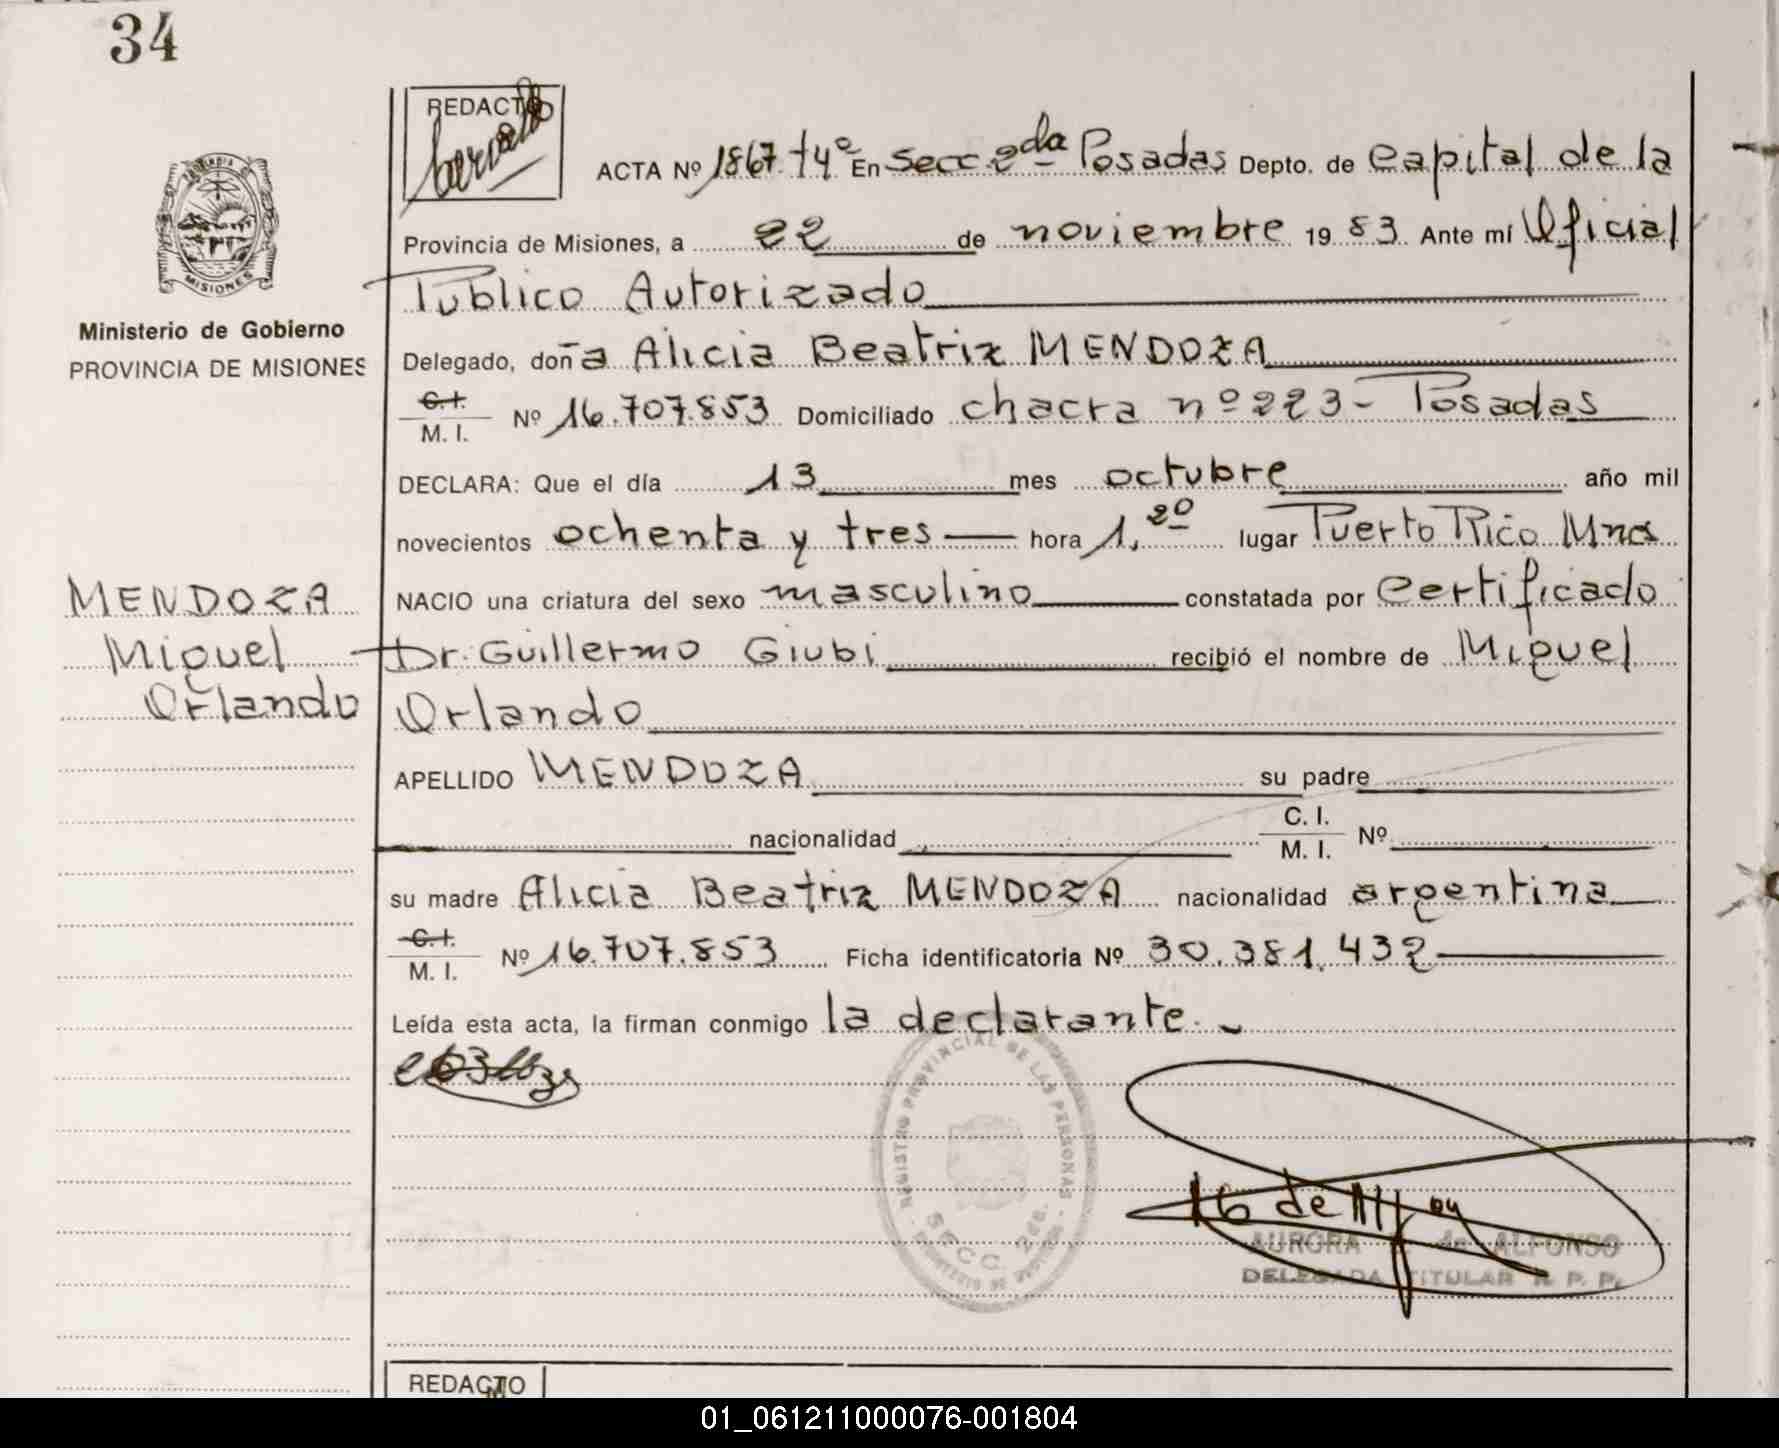 34
REDACTO
ACTA Nº 1867 t4º En Secc 2da Posadas Depto. de Capital de la
MISIONES
Provincia de Misiones, a 22 de noviembre 1983. Ante mí Oficial
Publico Autorizado
Ministerio de Gobierno
PROVINCIA DE MISIONES
Delegado, doña Alicia Beatriz MENDOZA
C.I.
M. I. Nº 16.707.853 Domiciliado chacra nº 223 - Posadas
DECLARA: Que el día 13 mes octubre año mil
novecientos ochenta y tres hora 1,20 lugar Puerto Rico Mnes
MENDOZA
Miguel
Orlando
NACIO una criatura del sexo masculino constatada por Certificado
Dr. Guillermo Giubi recibió el nombre de Miguel
Orlando
APELLIDO MENDOZA su padre
nacionalidad C. I.
M. I. Nº
su madre Alicia Beatriz MENDOZA nacionalidad argentina
C.I.
M. I. Nº 16.707.853 Ficha identificatoria Nº 30.381.432
Leída esta acta, la firman conmigo la declarante.
REGISTRO PROVINCIAL DE LAS PERSONAS
SECC 2da.
AURORA de ALFONSO
DELEGADA TITULAR R. P. P.
REDACTO
01_061211000076-001804